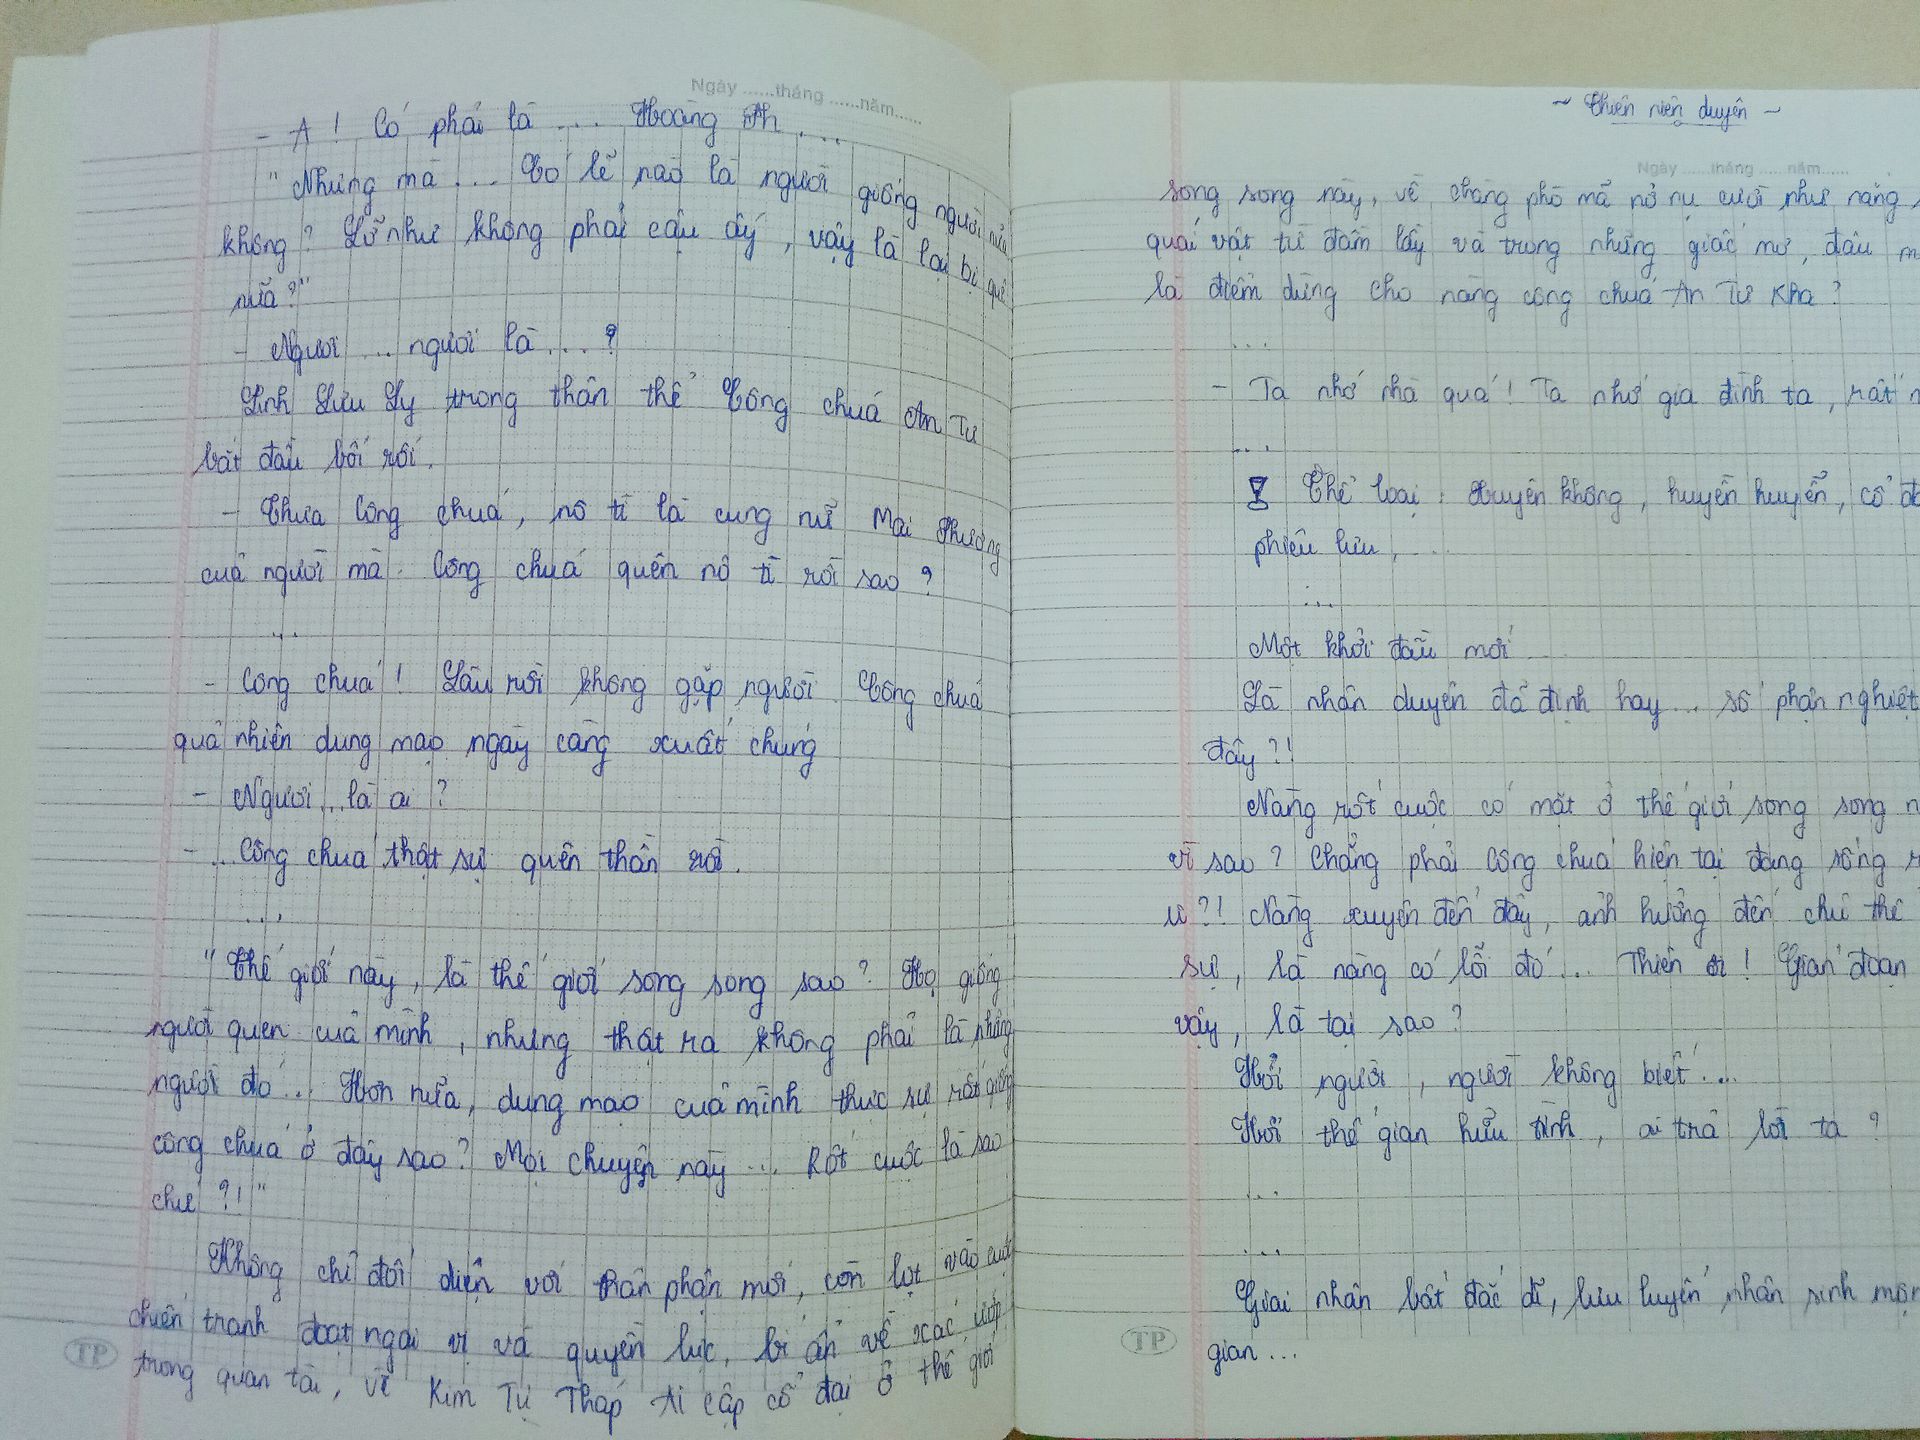 Ngày ......tháng ......năm......
- A ! Có phải là ... Hoàng Ah ....
" Nhưng mà ... Có lẽ nào là người giống người nữa
không ? Lỡ như không phải cậu ấy , vậy là lại bị quê
nữa ? "
- Ngươi ... ngươi là ... ?
Linh Lưu Ly trong thân thể Công chúa An Tư
bắt đầu bối rối .
- Thưa Công chúa , nô tì là cung nữ Mai Phương
của người mà . Công chúa quên nô tì rồi sao ?
...
- Công chúa ! Lâu rồi không gặp người . Công chúa
quả nhiên dung mạo ngày càng xuất chúng
- Ngươi ... là ai ?
- ... Công chúa thật sự quên thần rồi .
...
" Thế giới này , là thế giới song song sao ? Họ giống
người quen của mình , nhưng thật ra không phải là những
người đó ... Hơn nữa , dung mạo của mình thực sự rất giống
công chúa ở đây sao ? Mọi chuyện này ... Rốt cuộc là sao
chứ ?! "
Không chỉ đối diện với thân phận mới , còn lọt vào cuộc
chiến tranh đoạt ngai vị và quyền lực , bí ẩn về xác ướp
trong quan tài , về Kim Tự Tháp Ai Cập cổ đại ở thế giới
TP
~ Thiên niên duyên ~
Ngày ......tháng ......năm......
song song này , về chàng phò mã nở nụ cười như nắng
quái vật từ đầm lầy và trong những giấc mơ , đâu
là điểm dừng cho nàng công chúa An Tư Kha ?
...
- Ta nhớ nhà quá ! Ta nhớ gia đình ta , rất
...
Thể loại : Xuyên không , huyền huyễn , cổ
phiêu lưu , ...
...
Một khởi đầu mới ...
Là nhân duyên đã định hay ... số phận nghiệt
đây ?!
Nàng rốt cuộc có mặt ở thế giới song song
vì sao ? Chẳng phải công chúa hiện tại đang sống
ư ?! Nàng xuyên đến đây , ảnh hưởng đến chủ thể
sự , là nàng có lỗi đó ... Thiên ơi ! Gián đoạn
vậy , là tại sao ?
Hỏi người , người không biết ...
Hỏi thế gian hữu tình , ai trả lời ta ?
...
...
Giai nhân bất đắc dĩ , lưu luyến nhân sinh
gian ...
TP